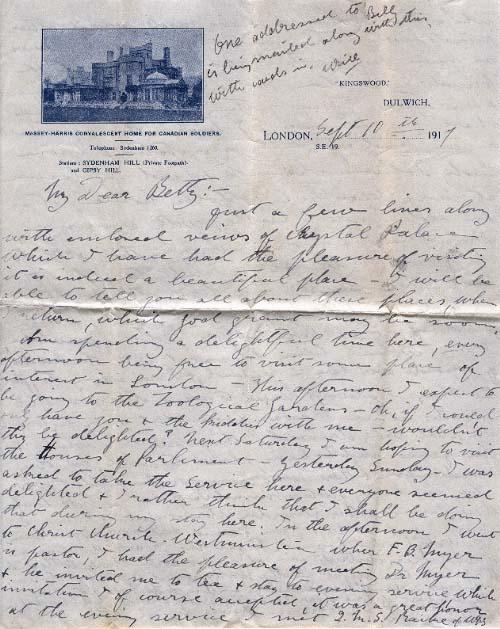 One addressed to Billy
is being mailed along with this
with cards in.
MASSEY-HARRIS CONVALESCENT HOME FOR CANADIAN SOLDIERS.
Telephone: Sydenham 1260.
Station: SYDENHAM HILL (Private Footpath)
and GIPSY HILL.
"KINGSWOOD,"
DULWICH,
LONDON, Sept 10th 1917
S.E. 19.
My Dear Betty:-
Just a few lines along
with enclosed veiws of Chrystal Palace
which I have had the pleasure of visiting
it is indeed a beautiful place - I will be
able to tell you all about these places when
I return, which God grant may be soon.
Am spending a delightful time here every
afternoon being free to visit some place of
interest in London - This afternoon I expect to
be going to the Zoological Gardens - Oh, if I could
have you & the kiddies with me - wouldn't
they be delighted? Next Saturday I am hoping to visit
the Houses of Parliment. Yesterday Sunday - I was
asked to take the Service here & everyone seemed
delighted & I rather think that I shall be doing
that during my stay here. In the afternoon I went
to Christ Church. Westminster where F.B. Myer
is pastor, I had the pleasure of meeting Dr Myer
& he invited me to tea & stay to evening service which
invitation I of course accepted, it was a great honor
at the evening service I met Q.M.S. of